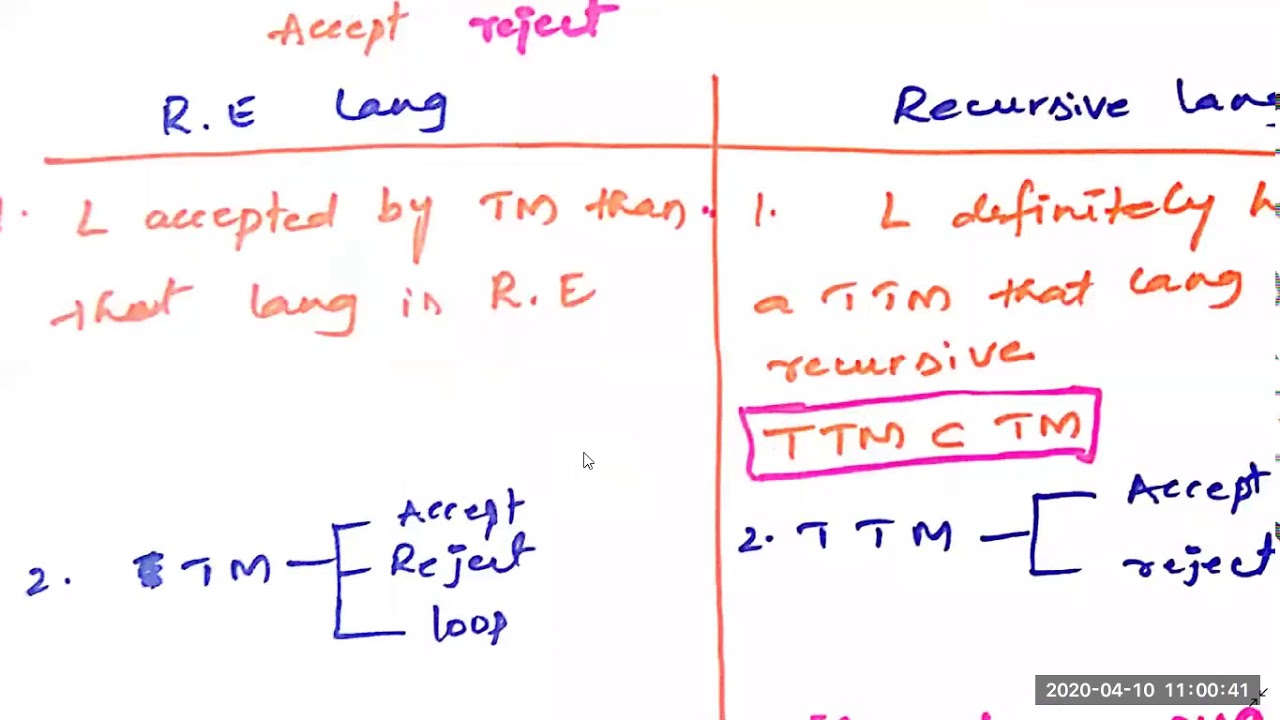 Accept reject
R.E Lang
1. L accepted by TM than
that lang in R.E
2. TM
Accept
Reject
loop
Recursive lang
1. L definitely
a TTM that lang
recursive
TTM ⊂ TM
2. TTM
Accept
reject
2020-04-10 11:00:41